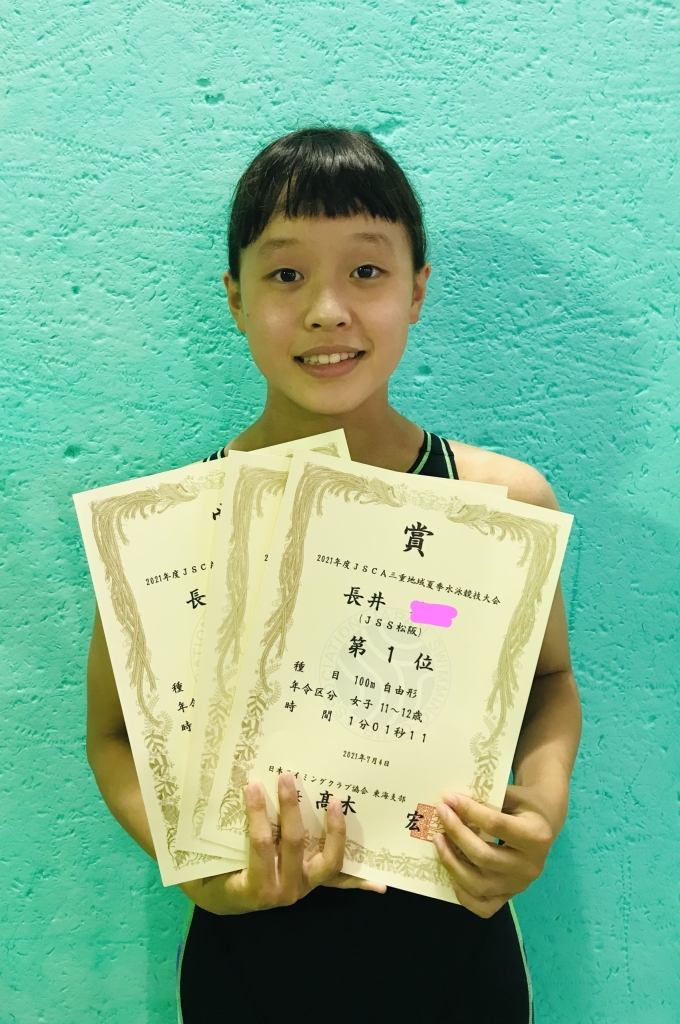 賞
2021年度JSCA三重地域夏季水泳競技大会
長井
(JSS松阪)
第 1 位
種 目 100m 自由形
年令区分 女子 11〜12歳
時 間 1分01秒11
2021年7月4日
日本 イミングクラブ協会 東海支部
髙木 宏
2021年度JSCA
長
種
年令
時